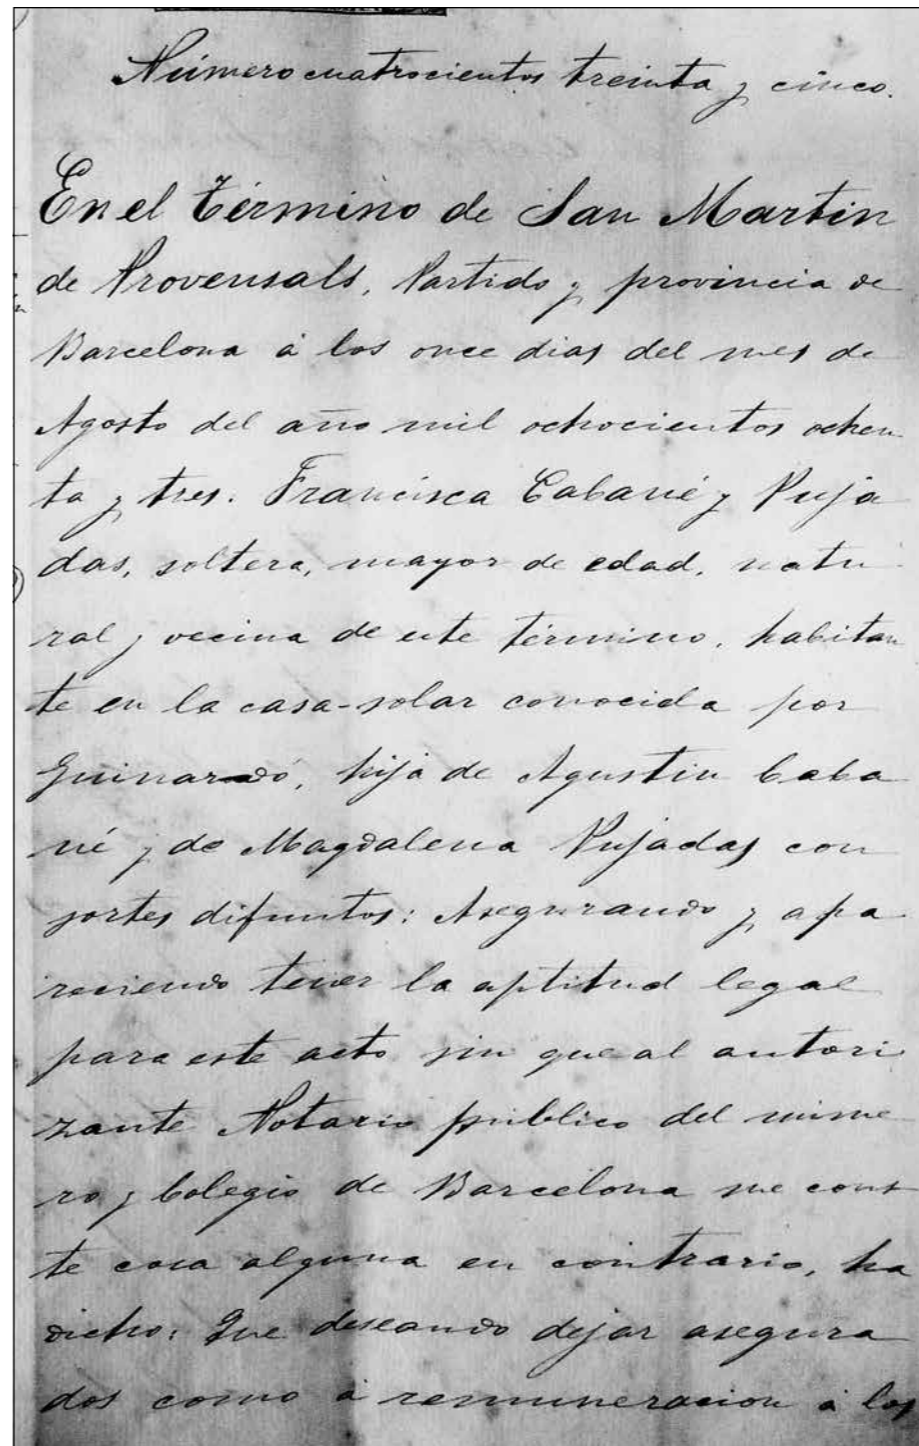 Número cuatrocientos treinta y cinco.
En el término de San Martin
de Provensals, Partido y provincia de
Barcelona á los once dias del mes de
Agosto del año mil ochocientos ochen
ta y tres. Francisca Cabañé y Puja
das, soltera, mayor de edad, natu
ral y vecina de este término, habitan
te en la casa-solar conocida por
Guinardó, hija de Agustin Caba
ñé y de Magdalena Pujadas con
sortes difuntos: Asegurando y apa
reciendo tener la aptitud legal
para este acto sin que al autori
zante Notario público del núme
ro y Colegio de Barcelona me cons
te cosa alguna en contrario, ha
dicho: Que deseando dejar asegura
dos como á remuneracion á los